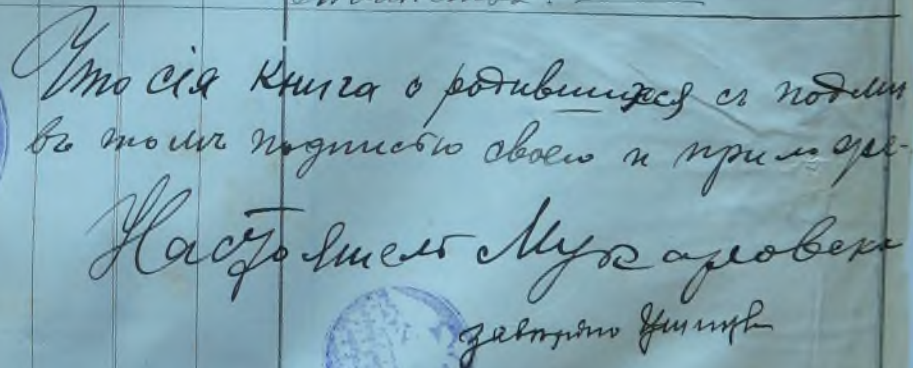 Что сія книга о родившихся съ подлин
въ томъ подписью своею и прило
Настоятель Мукаловска